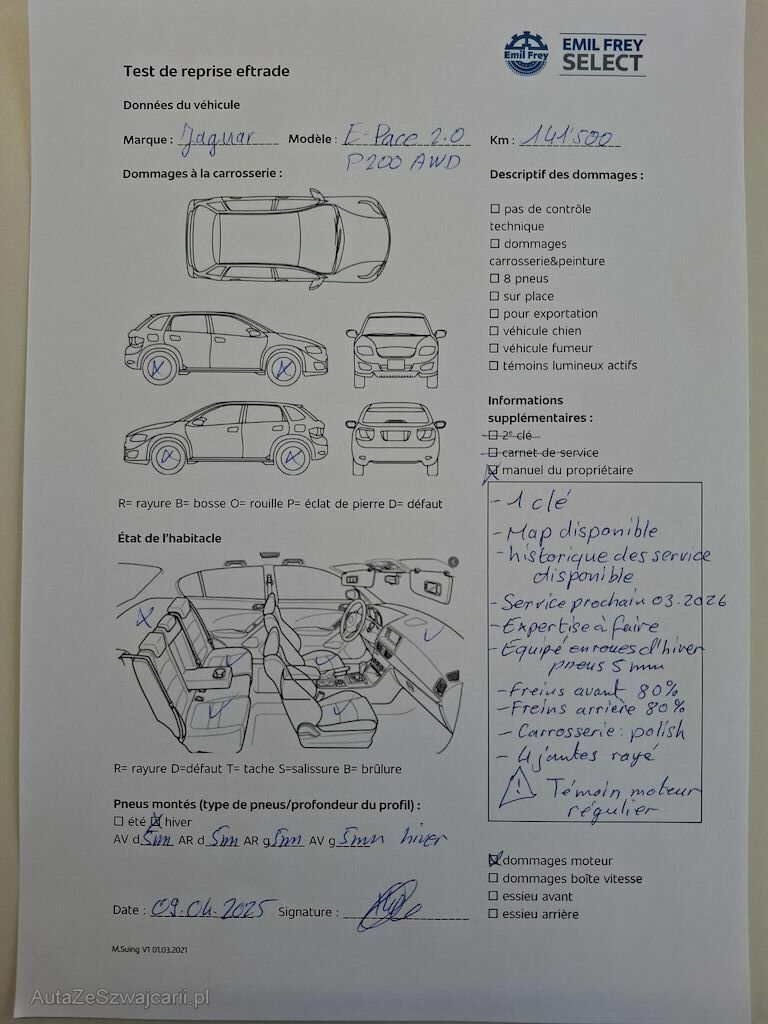 Emil Frey
EMIL FREY
SELECT
Test de reprise eftrade
Données du véhicule
Marque : Jaguar Modèle : E-Pace 2.0 Km : 141'500
P200 AWD
Dommages à la carrosserie :
Descriptif des dommages :
☐ pas de contrôle
technique
☐ dommages
carrosserie&peinture
☐ 8 pneus
☐ sur place
☐ pour exportation
☐ véhicule chien
☐ véhicule fumeur
☐ témoins lumineux actifs
Informations
supplémentaires :
☐ 2e clé
☐ carnet de service
☒ manuel du propriétaire
R= rayure B= bosse O= rouille P= éclat de pierre D= défaut
- 1 clé
- Map disponible
- historique des service
disponible
- Service prochain 03.2026
- Expertise à faire
- Equipé en roues d'hiver
pneus 5 mm
- Freins avant 80%
- Freins arrière 80%
- Carrosserie: polish
- 4 jantes rayé
⚠ Témoin moteur
régulier
État de l'habitacle
R= rayure D=défaut T= tache S=salissure B= brûlure
Pneus montés (type de pneus/profondeur du profil) :
☐ été ☒ hiver
AV d 5mm AR d 5mm AR g 5mm AV g 5mm hiver
☒ dommages moteur
☐ dommages boîte vitesse
☐ essieu avant
☐ essieu arrière
Date : 09.04.2025 Signature :
M.Suing V1 01.03.2021
AutaZeSzwajcarii.pl